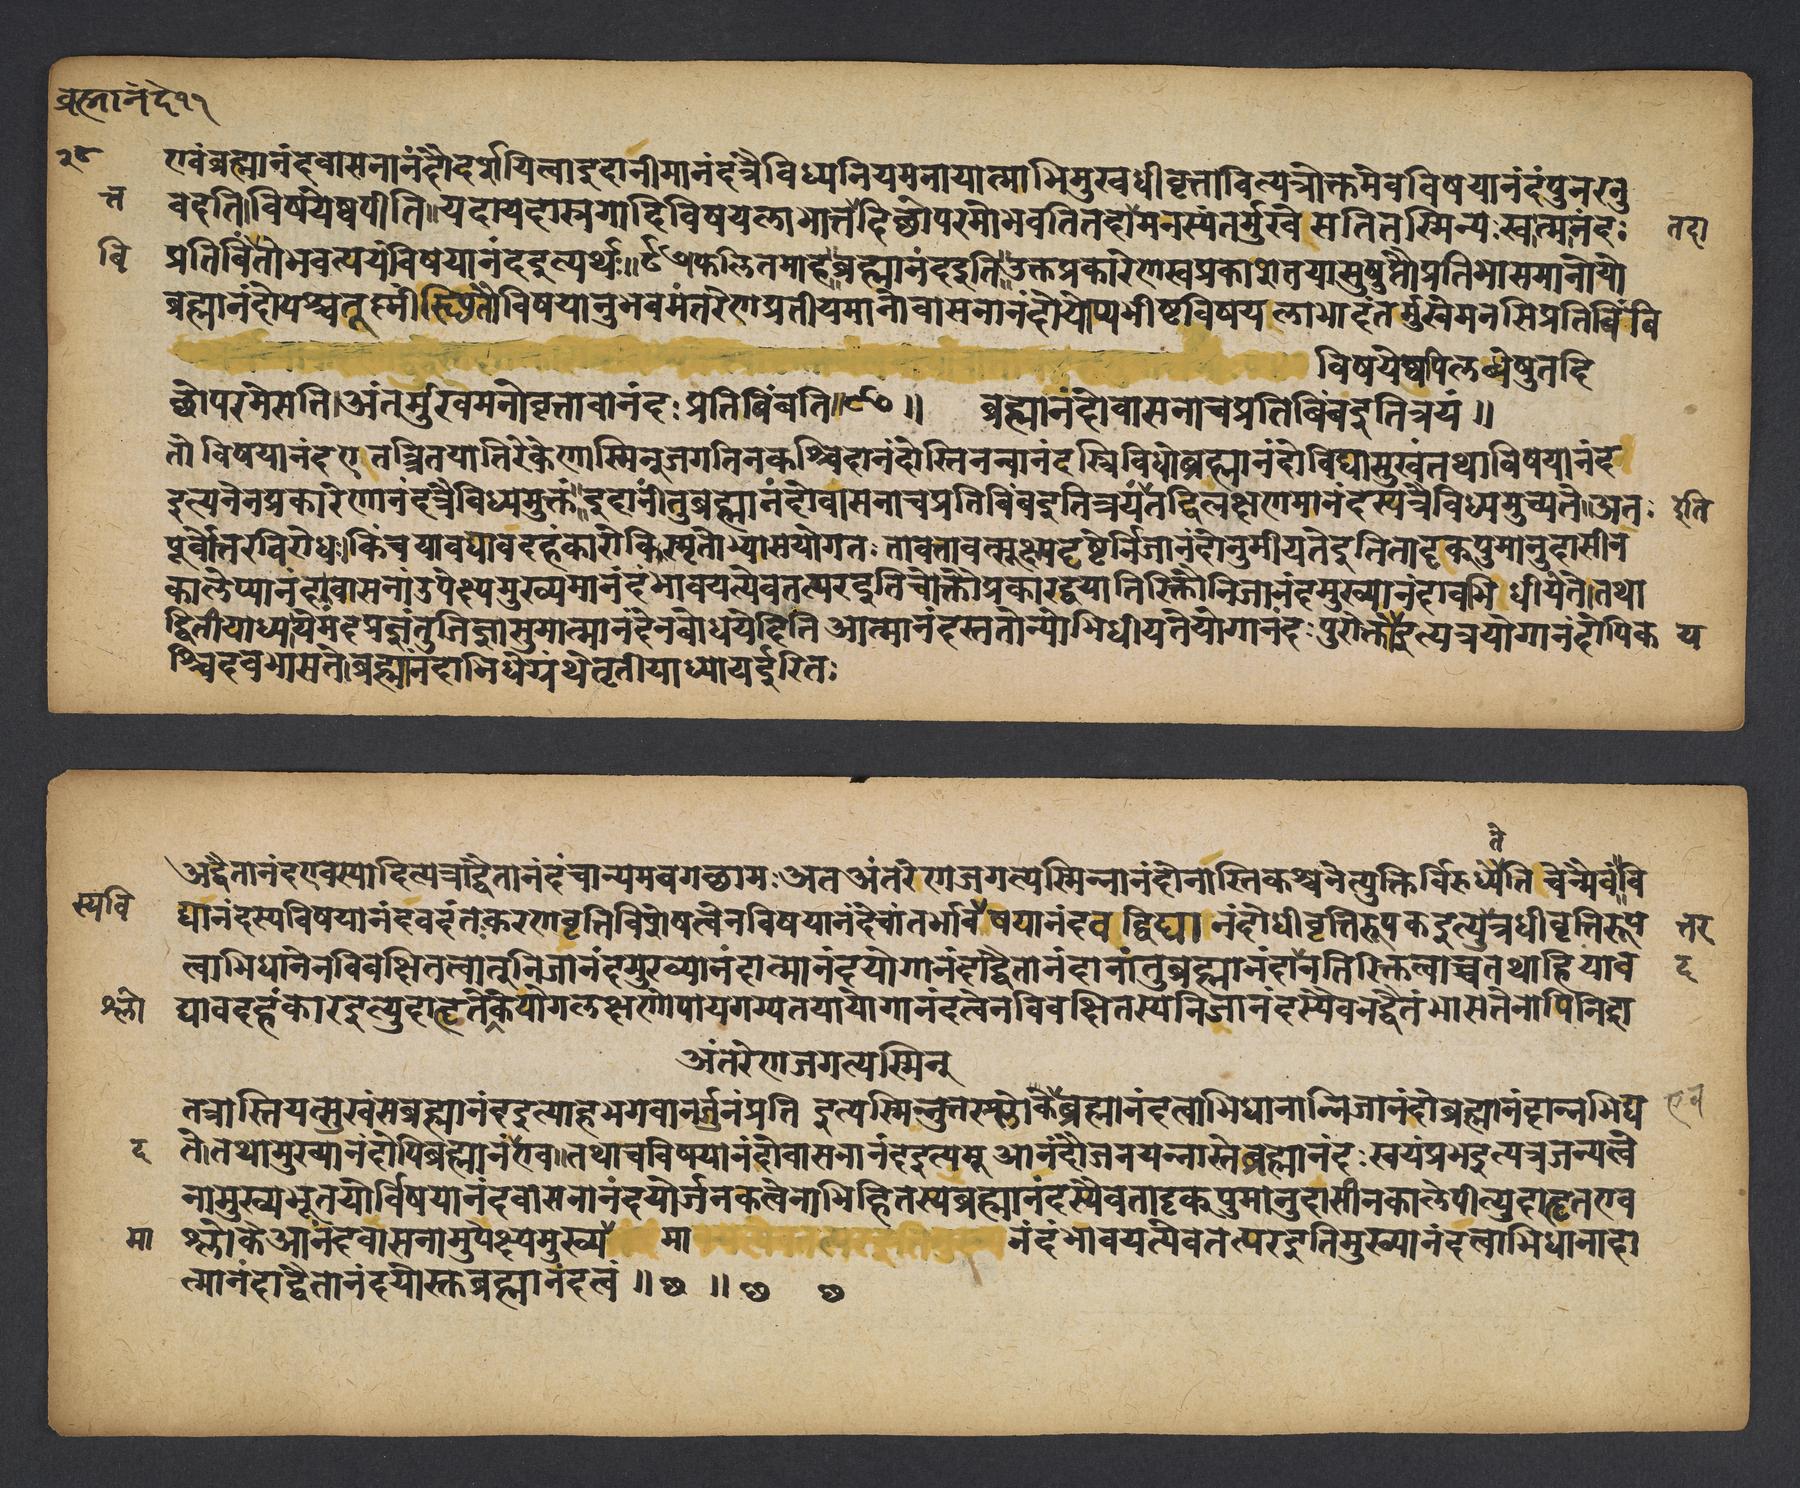 ब्रह्मानंदे११
२८
एवंब्रह्मानंदवासनानंदौदर्शयित्वाइदानीमानंदंत्रैविध्यनियमनायात्माभिमुखधीवृत्तावित्यत्रोक्तमेवविषयानंदंपुनरनु
त्त
वदति॥विषयेष्वपीति॥यदायदास्रगादिविषयलाभात्तदिच्छोपरमोभवतितदामनस्यंतर्मुखे सतितस्मिन्यःस्वात्मानंदः
तदा
बि
प्रतिबिंतोभवत्ययंविषयानंदइत्यर्थः॥ फलितमाह॥ब्रह्मानंदइति॥उक्तप्रकारेणस्वप्रकाशेतयासुषुप्तौप्रतिभासमानोयो
ब्रह्मानंदोयश्चतूष्णींस्थितौविषयानुभवमंतरेणप्रतीयमानोवासनानंदोयोप्यभीष्टविषयलाभादंतर्मुखेमनसिप्रतिबिंबि
विषयेष्वपिलब्धेषुतदि
च्छोपरमेसति।अंतर्मुखमनोवृत्तावानंदःप्रतिबिंबति॥ ॥ ब्रह्मानंदोवासनाचप्रतिबिंबइतित्रयं॥
तो विषयानंदएतत्त्रितयातिरेकेणास्मिन्जगतिनकश्चिदानंदोस्तिनन्वानंदस्त्रिविधोब्रह्मानंदोविद्यासुखंतथाविषयानंद
इत्यनेनप्रकारेणानंदंत्रैविध्यमुक्तं॥इदानींतुब्रह्मानंदोवासनाचप्रतिबिंबइतित्रयंतद्विलक्षणमानंदस्यत्रैविध्यमुच्यते॥अतः
इति
पूर्वोत्तरविरोधः॥किंचयावद्यावदहंकारोविस्मृतोभ्यासयोगतःतावत्तावत्सूक्ष्मदृष्टेर्निजानंदोनुमीयतेइतितादृक्पुमानुदासीन
कालेप्यानंदवासनांउपेक्ष्यमुख्यमानंदंभावयत्येवतत्परइतिचोक्तौप्रकारद्वयातिरिक्तौनिजानंदमुख्यानंदावभि धीयेते।तथा
द्वितीयाध्यायेमंदप्रज्ञंतुजिज्ञासुमात्मानंदेनबोधयेदिति आत्मानंदस्ततोन्योभिधीयतेयोगानंदःपुरोक्तोइत्यत्रयोगानंदोपिक
य
श्चिदवभासते।ब्रह्मानंदाभिधेग्रंथेतृतीयाध्यायईरितः
ते
अद्वैतानंदएवस्यादित्यत्राद्वैतानंदंचान्यमवगच्छामः॥अतअंतरेणजगत्यस्मिन्नानंदोनास्तिकश्चनेत्युक्तिर्विरुध्येति चेन्मैवं॥वि
स्यवि
द्यानंदस्यविषयानंदवदंतःकरणवृत्तिविशेषत्वेनविषयानंदेचांतर्भावषयानंदव द्विद्या नंदोधीवृत्तिरूपकइत्युत्रधीवृत्तिरूप
त्तर
त्वाभिधानेनविवक्षितत्वात्निजानंदमुख्यानंदात्मानंदयोगानंदाद्वैतानंदानांतुब्रह्मानंदानतिरिक्तत्वाच्चतथाहियाव
द
श्लो
द्यावदहंकारइत्युदाहृतेकेयोगलक्षणोपायगम्यतयायोगानंदत्वेनविवक्षितस्यनिजानंदस्यैवनद्वैतंभासतेनापिनिद्रा
अंतरेणजगत्यस्मिन्
तत्रास्तियत्सुखंसब्रह्मानंदइत्याहभगवानर्जुनंप्रति इत्यस्मिन्नुत्तरश्लोकेब्रह्मानंदत्वाभिधानान्निजानंदोब्रह्मानंदान्नभिद्य
एव
द
ते।तथामुख्यानंदोपिब्रह्मानंएव॥तथाचविषयानंदोवासनानंदइत्यमू आनंदौजनयन्नास्तेब्रह्मानंदःस्वयंप्रभइत्यत्रजन्यत्वे
नामुख्यभूतयोर्विषयानंदवासनानंदयोर्जनकत्वेनाभिहितस्यब्रह्मानंदस्यैवतादृक्पुमानुदासीनकालेपीत्युदाहृतएव
मा
श्लोकेआनंदवासनामुपेक्ष्यमुख्य मा नंदंभावयत्येवतत्परइतिमुख्यानंदत्वाभिधानादा
त्मानंदाद्वैतानंदयोस्तुब्रह्मानंदत्वं॥छ॥छ छ